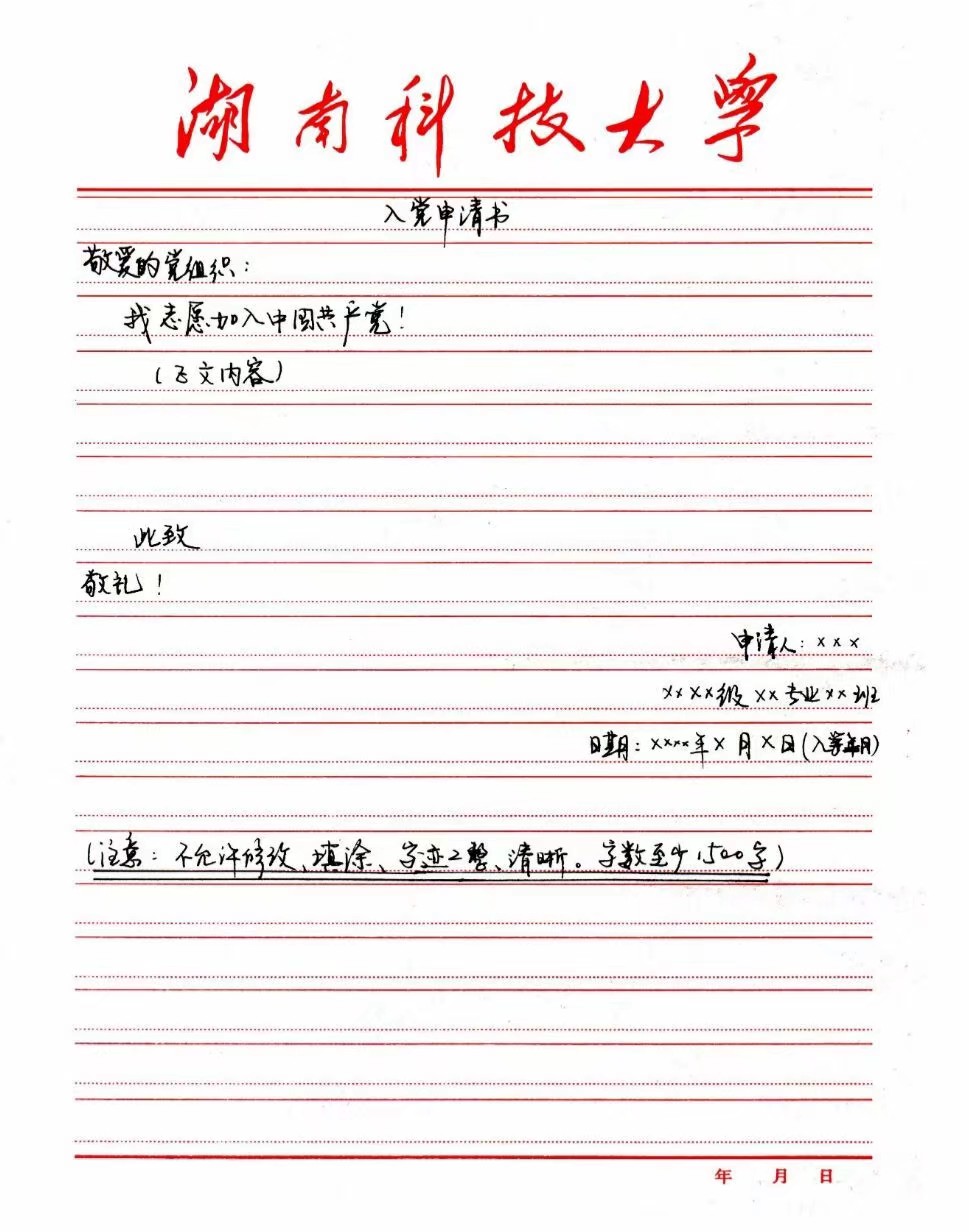 湖南科技大学
入党申请书
敬爱的党组织：
我志愿加入中国共产党！
（正文内容）
此致
敬礼！
申请人：×××
××××级××专业××班
日期：××××年×月×日（入学年月）
（注意：不允许修改、填涂、字迹工整、清晰。字数至少1500字）
年 月 日